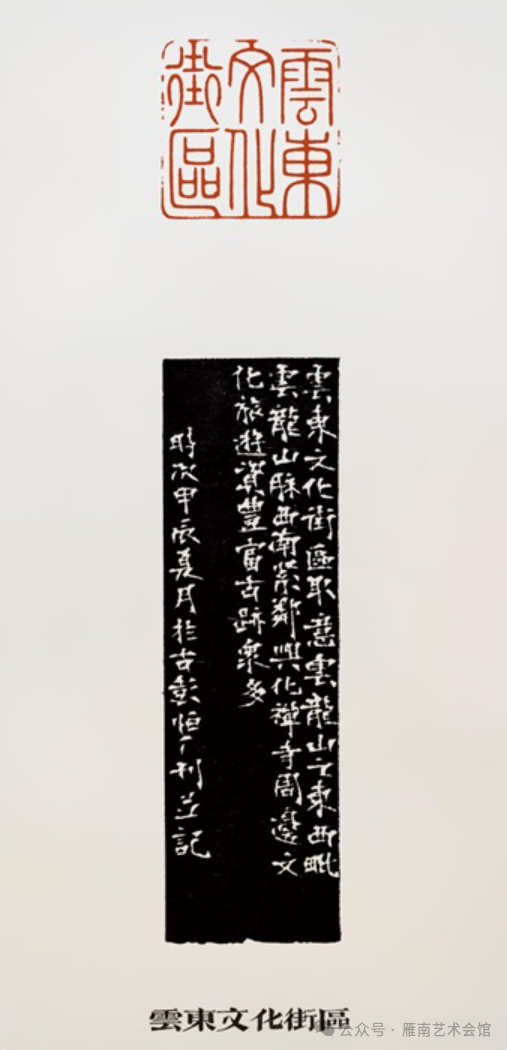 雲東
文化
街區
雲東文化街區取意雲龍山之東西毗
雲龍山脉西南緊鄰興化禪寺周邊文
化旅遊資豐富古跡衆多
時次甲辰夏月於古彭恒广刊並記
雲東文化街區
公众号 · 雁南艺术会馆